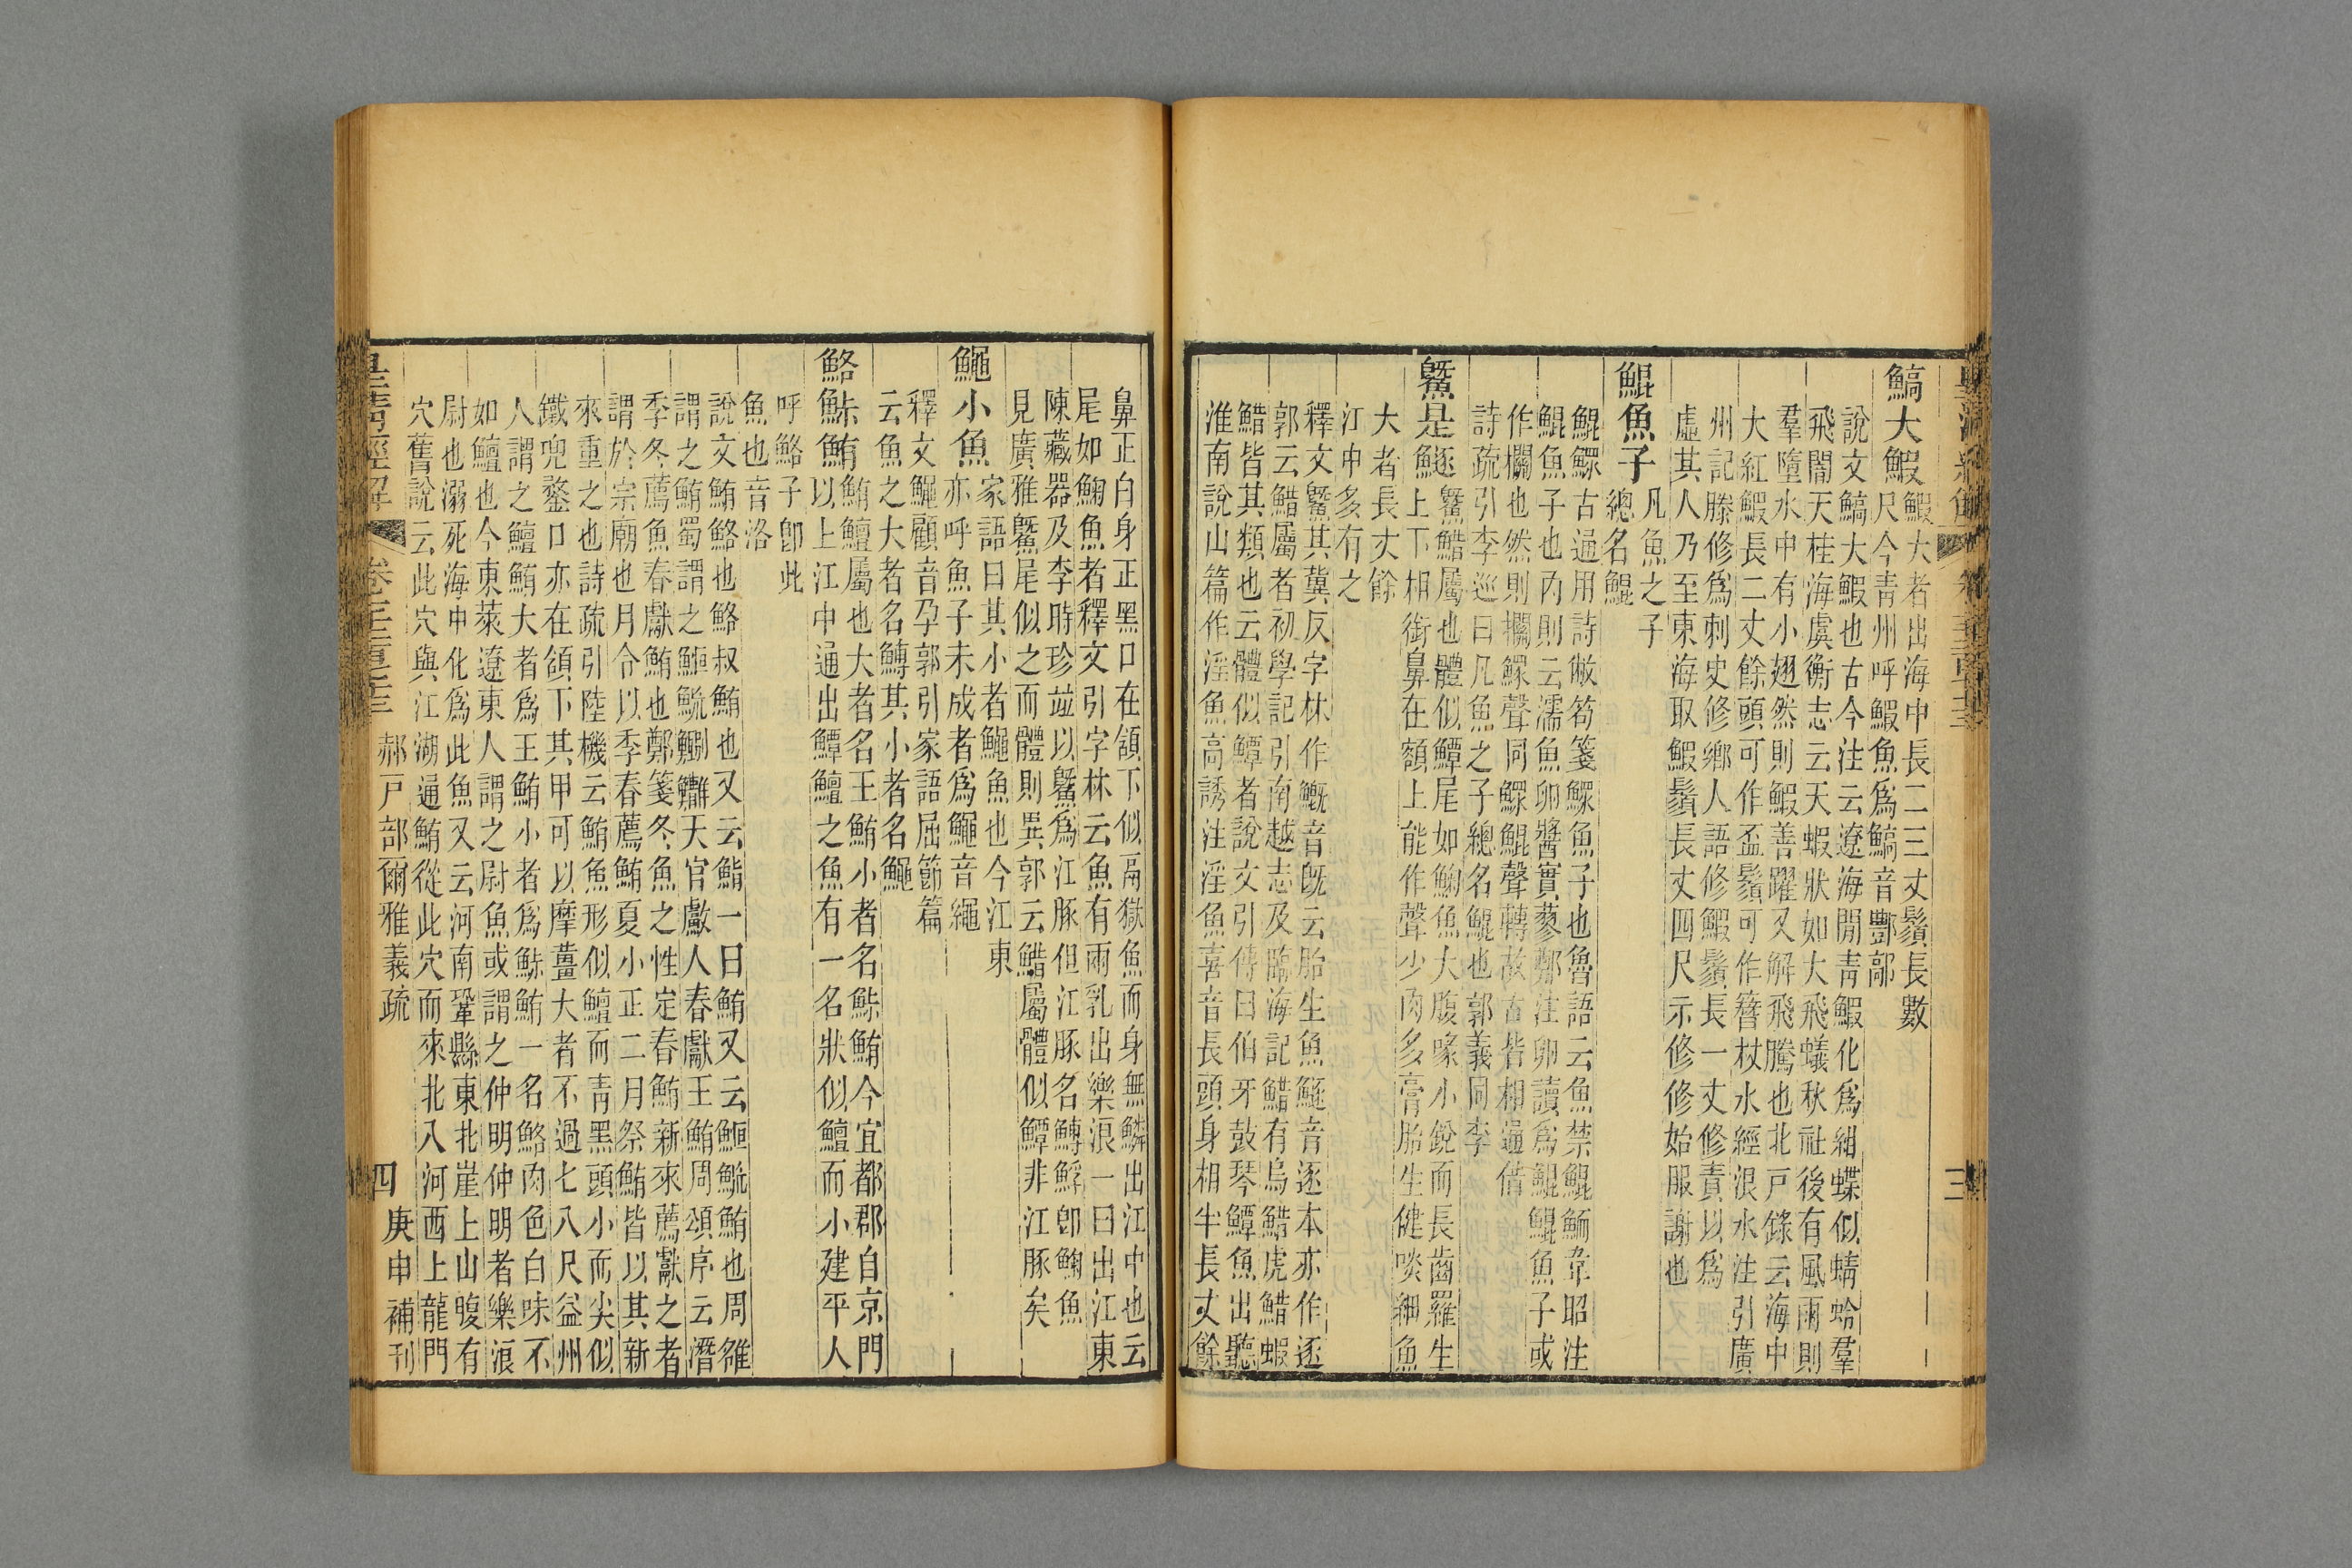 三
鰝大鰕
鰕大者出海中長二三丈鬚長數
尺今青州呼鰕魚爲鰝音酆鄗
說文鰝大鰕也古今注云遼海閒青鰕化爲紺蝶似蜻蛉羣
飛闇天桂海虞衡志云天蝦狀如大飛蟻秋社後有風雨則
羣墮水中有小翅然則鰕善躍又解飛騰也北戸錄云海中
大紅鰕長二丈餘頭可作盃鬚可作簪杖水經浪水注引廣
州記滕修爲刺史修鄉人語修鰕鬚長一丈修責以爲
虛其人乃至東海取鰕鬚長丈四尺示修修始服謝也
鯤魚子
凡魚之子
總名鯤
鯤鰥古通用詩敝笱箋鰥魚子也魯語云魚禁鯤鮞韋昭注
鯤魚子也內則云濡魚卵醬實蓼鄭注卵讀爲鯤鯤魚子或
作攔也然則攔鰥聲同鰥鯤聲轉故古皆相通借
詩疏引李巡曰凡魚之子總名鯤也郭義同李
鱀是鱁
鱀䱜屬也體似鱏尾如䱡魚大腹喙小銳而長齒羅生
上下相銜鼻在額上能作聲少肉多膏胎生健啖細魚
大者長丈餘
江中多有之
釋文鱀其冀反字林作鱀音旣云胎生魚鱁音逐本亦作逐
郭云䱜屬者初學記引南越志及臨海記䱜有烏䱜虎䱜蝦
䱜皆其類也云體似鱏者說文引傳曰伯牙鼓琴鱏魚出聽
淮南說山篇作淫魚高誘注淫魚喜音長頭身相半長丈餘
鼻正白身正黑口在頷下似鬲獄魚而身無鱗出江中也云
尾如䱡魚者釋文引字林云魚有兩乳出樂浪一曰出江東
陳藏器及李時珍竝以鱀爲江豚但江豚名鱄䱐卽䱡魚
見廣雅鱀尾似之而體則異郭云䱜屬體似鱏非江豚矣
鱦小魚
家語曰其小者鱦魚也今江東
亦呼魚子未成者爲鱦音繩
釋文鱦顧音孕郭引家語屈節篇
云魚之大者名鱄其小者名鱦
鮥鮛鮪
鮪鱣屬也大者名王鮪小者名鮛鮪今宜都郡自京門
以上江中通出鱏鱣之魚有一名狀似鱣而小建平人
呼鮥子卽此
魚也音洛
說文鮪鮥也鮥叔鮪也又云鮨一曰鮪又云䱭䱽鮪也周雒
謂之鮪蜀謂之䱭䱽天官䱷人春獻王鮪周頌序云潛
季冬薦魚春獻鮪也鄭箋冬魚之性定春鮪新來薦獻之者
謂於宗廟也月令以季春薦鮪夏小正二月祭鮪皆以其新
來重之也詩疏引陸機云鮪魚形似鱣而青黑頭小而尖似
鐵兜鍪口亦在頷下其甲可以摩薑大者不過七八尺益州
人謂之鱣鮪大者爲王鮪小者爲鮛鮪一名鮥肉色白味不
如鱣也今東萊遼東人謂之尉魚或謂之仲明仲明者樂浪
尉也溺死海中化爲此魚又云河南鞏縣東北崖上山腹有
穴舊說云此穴與江湖通鮪從此穴而來北入河西上龍門
皇清經解
郝戸部爾雅義疏
四
庚申補刊